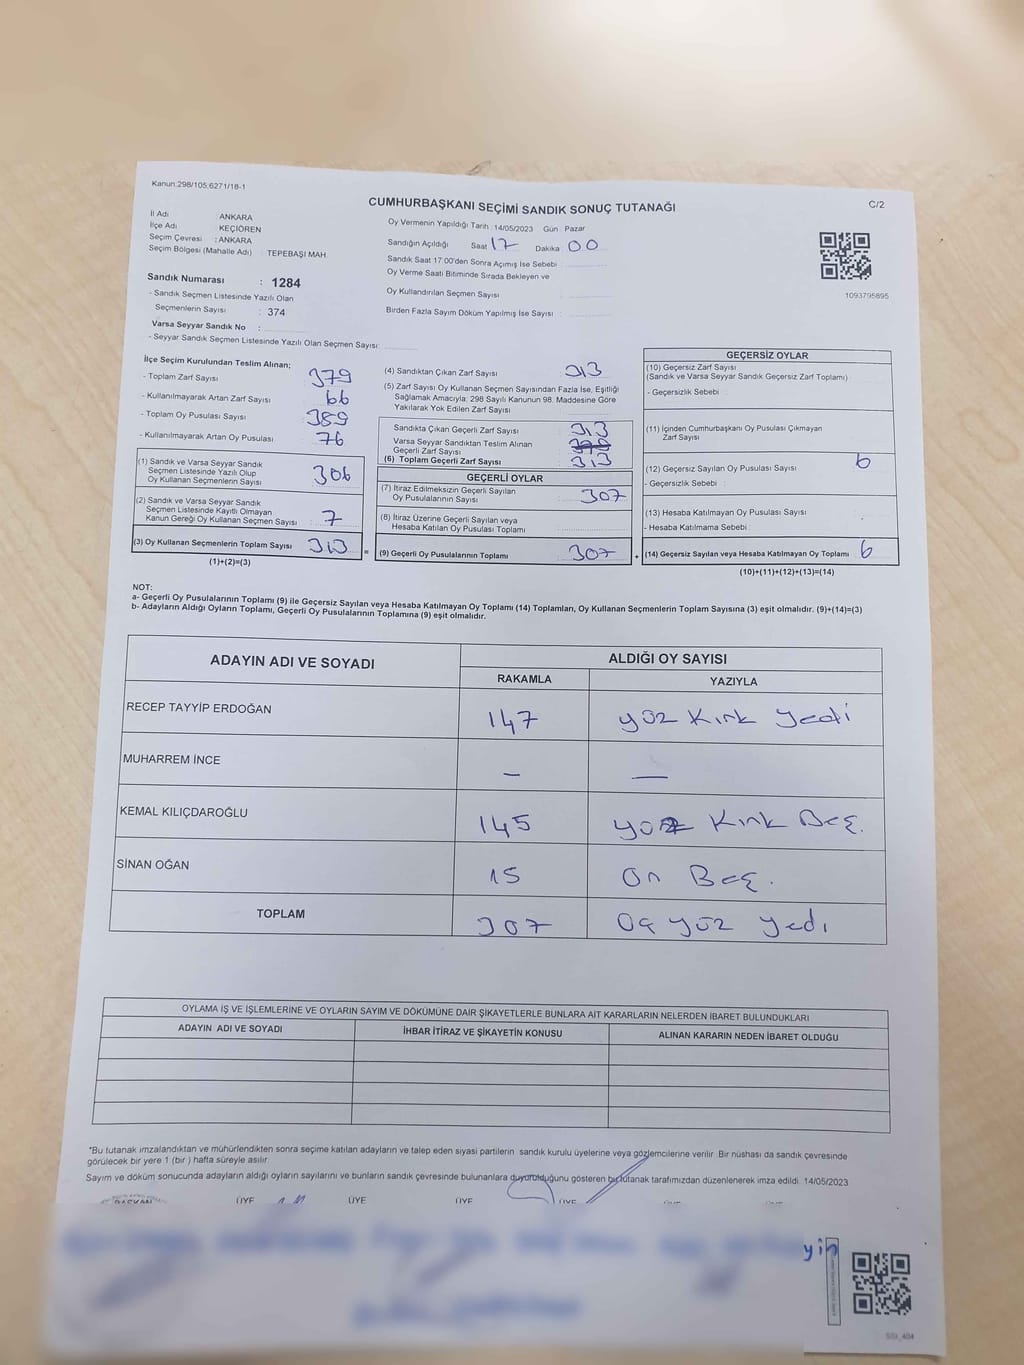 Kanun:298/105;6271/18-1
CUMHURBAŞKANI SEÇİMİ SANDIK SONUÇ TUTANAĞI
C/2
İl Adı : ANKARA
İlçe Adı : KEÇİÖREN
Seçim Çevresi : ANKARA
Seçim Bölgesi (Mahalle Adı) : TEPEBAŞI MAH.
Sandık Numarası : 1284
- Sandık Seçmen Listesinde Yazılı Olan
Seçmenlerin Sayısı : 374
Varsa Seyyar Sandık No :
- Seyyar Sandık Seçmen Listesinde Yazılı Olan Seçmen Sayısı:
Oy Vermenin Yapıldığı Tarih : 14/05/2023 Gün : Pazar
Sandığın Açıldığı Saat 17 Dakika 00
Sandık Saat 17:00'den Sonra Açımış İse Sebebi :
Oy Verme Saati Bitiminde Sırada Bekleyen ve
Oy Kullandırılan Seçmen Sayısı :
Birden Fazla Sayım Döküm Yapılmış İse Sayısı :
1093795895
İlçe Seçim Kurulundan Teslim Alınan;
- Toplam Zarf Sayısı : 379
- Kullanılmayarak Artan Zarf Sayısı : 66
- Toplam Oy Pusulası Sayısı : 389
- Kullanılmayarak Artan Oy Pusulası : 76
(1) Sandık ve Varsa Seyyar Sandık
Seçmen Listesinde Yazılı Olup
Oy Kullanan Seçmenlerin Sayısı : 306
(2) Sandık ve Varsa Seyyar Sandık
Seçmen Listesinde Kayıtlı Olmayan
Kanun Gereği Oy Kullanan Seçmen Sayısı : 7
(3) Oy Kullanan Seçmenlerin Toplam Sayısı : 313
(1)+(2)=(3)
(4) Sandıktan Çıkan Zarf Sayısı : 313
(5) Zarf Sayısı Oy Kullanan Seçmen Sayısından Fazla İse, Eşitliği
Sağlamak Amacıyla; 298 Sayılı Kanunun 98. Maddesine Göre
Yakılarak Yok Edilen Zarf Sayısı :
Sandıkta Çıkan Geçerli Zarf Sayısı : 313
Varsa Seyyar Sandıktan Teslim Alınan
Geçerli Zarf Sayısı :
(6) Toplam Geçerli Zarf Sayısı : 313
GEÇERLİ OYLAR
(7) İtiraz Edilmeksizin Geçerli Sayılan
Oy Pusulalarının Sayısı : 307
(8) İtiraz Üzerine Geçerli Sayılan veya
Hesaba Katılan Oy Pusulası Toplamı :
= (9) Geçerli Oy Pusulalarının Toplamı : 307
GEÇERSİZ OYLAR
(10) Geçersiz Zarf Sayısı
(Sandık ve Varsa Seyyar Sandık Geçersiz Zarf Toplamı) :
- Geçersizlik Sebebi :
(11) İçinden Cumhurbaşkanı Oy Pusulası Çıkmayan
Zarf Sayısı :
(12) Geçersiz Sayılan Oy Pusulası Sayısı : 6
- Geçersizlik Sebebi :
(13) Hesaba Katılmayan Oy Pusulası Sayısı :
- Hesaba Katılmama Sebebi :
+ (14) Geçersiz Sayılan veya Hesaba Katılmayan Oy Toplamı : 6
(10)+(11)+(12)+(13)=(14)
NOT:
a- Geçerli Oy Pusulalarının Toplamı (9) ile Geçersiz Sayılan veya Hesaba Katılmayan Oy Toplamı (14) Toplamları, Oy Kullanan Seçmenlerin Toplam Sayısına (3) eşit olmalıdır. (9)+(14)=(3)
b- Adayların Aldığı Oyların Toplamı, Geçerli Oy Pusulalarının Toplamına (9) eşit olmalıdır.
ADAYIN ADI VE SOYADI ALDIĞI OY SAYISI
RAKAMLA YAZIYLA
RECEP TAYYİP ERDOĞAN 147 yüz Kırk yedi
MUHARREM İNCE — —
KEMAL KILIÇDAROĞLU 145 yüz Kırk Beş.
SİNAN OĞAN 15 On Beş.
TOPLAM 307 Üç yüz yedi
OYLAMA İŞ VE İŞLEMLERİNE VE OYLARIN SAYIM VE DÖKÜMÜNE DAİR ŞİKAYETLERLE BUNLARA AİT KARARLARIN NELERDEN İBARET BULUNDUKLARI
ADAYIN ADI VE SOYADI İHBAR İTİRAZ VE ŞİKAYETİN KONUSU ALINAN KARARIN NEDEN İBARET OLDUĞU
*Bu tutanak imzalandıktan ve mühürlendikten sonra seçime katılan adayların ve talep eden siyasi partilerin sandık kurulu üyelerine veya gözlemcilerine verilir. Bir nüshası da sandık çevresinde
görülecek bir yere 1 (bir) hafta süreyle asılır.
Sayım ve döküm sonucunda adayların aldığı oyların sayılarını ve bunların sandık çevresinde bulunanlara duyurulduğunu gösteren bu tutanak tarafımızdan düzenlenerek imza edildi. 14/05/2023
BAŞKAN ÜYE ÜYE ÜYE ÜYE
yin